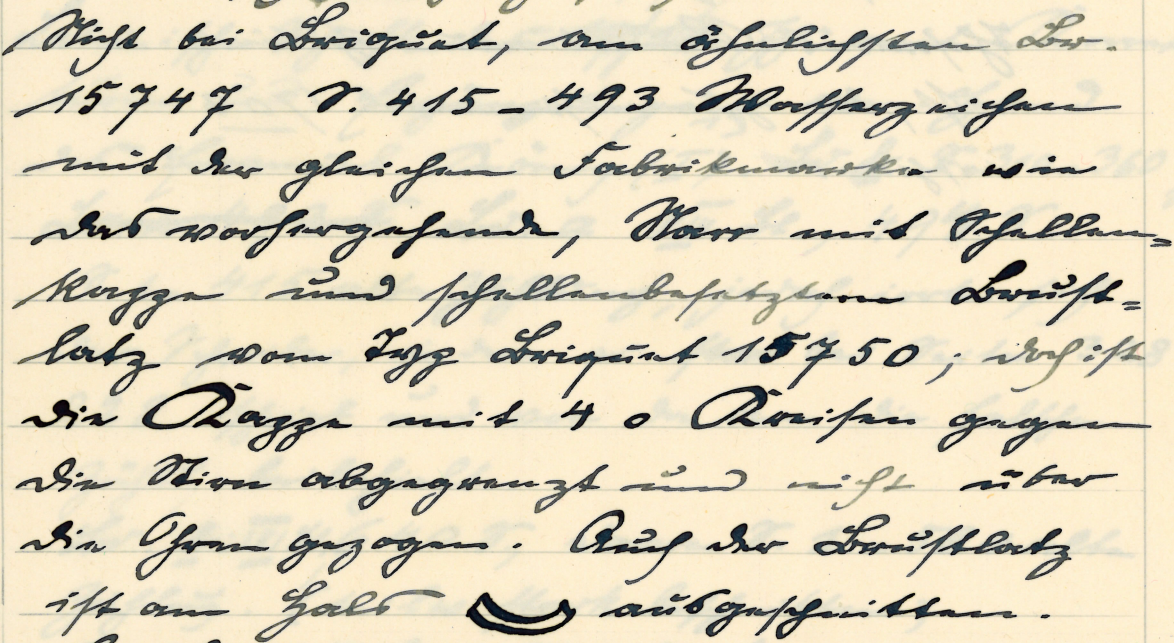 Nicht bei Briquet, am ähnlichsten Br.
15747 S. 415-493 Wasserzeichen
mit der gleichen Fabrikmarke wie
das vorhergehende, Narr mit Schellen=
kappe und schellenbesetztem Brust=
latz vom Typ Briquet 15750; doch ist
die Kappe mit 4 o Kreisen gegen
die Stirn abgegrenzt und nicht über
die Ohren gezogen. Auch der Brustlatz
ist am Hals ausgeschnitten.